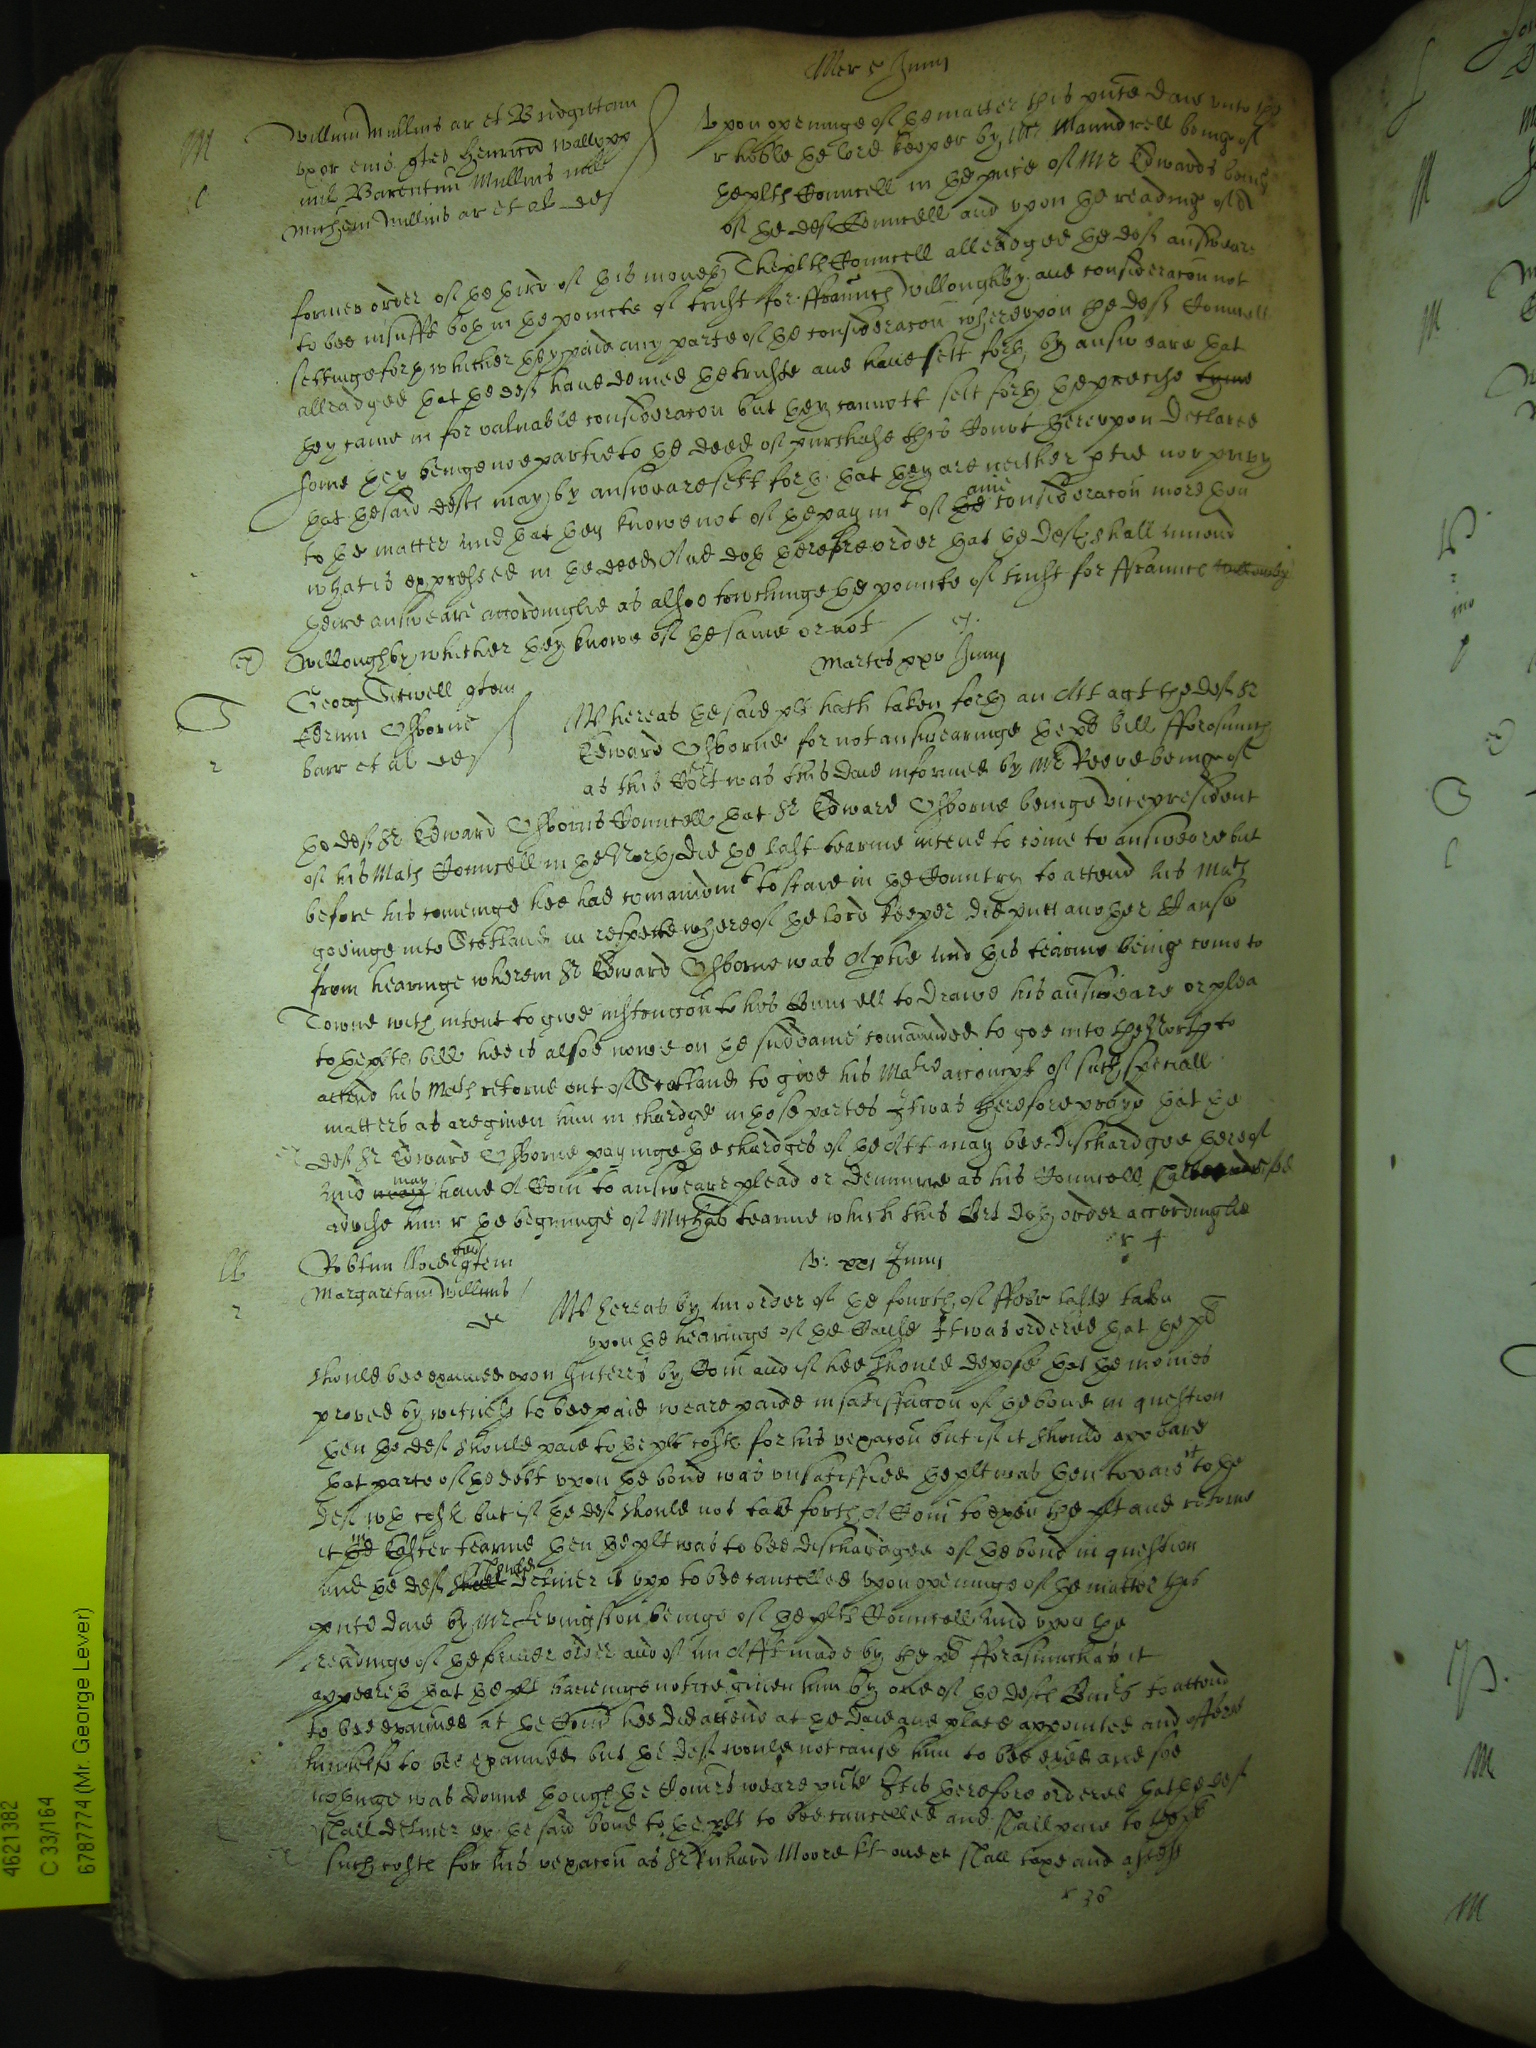 Mer 5 Junii
M
Willum Mullins ar et Bridgittam
uxor eius qtes Henricu Wallopp
mil Barentin Mullins mil
Michem Mullins ar et al def
Upon openinge of the matter this pnte daie unto the
r hoble the lord keeper by Mr Maundrell beinge of
the plts Councell in the pnce of Mr Edwards being
of the defts Councell and upon the reading of a
former order of the third of this moneth The plts Councell alleadged the defts answeare
to bee insufft both in the poincte of trust for ffraunces Willoughby and consideracon not
settinge forth whither they paid any parte of the consideracon whereupon the defts Councell
alleadged that the defts have denied the truste and have sett forth by answeare that
they came in for valuable consideracon but they cannott sett forth the precise tyme
some they beinge noe partie to the deed of purchase this Court thereupon declared
that the said defts may by answeare sett forth that they are neither ptie nor privy
anie
to the matter and that they knowe not of the paymt of the consideracon more then
what is expressed in the deed And doth therefore order that the defts shall amend
theire answeare accordinglie as alsoe touchinge the poincte of trust for ffraunces Willoughby
Willoughby whither they knowe of the same or not
Martes xxv Junii
T
2
Georg Sitwell qtem
Edrum Osborne
barr et al def
Whereas the said plt hath taken forth an Att agt the deft Sr
Edward Osborne for not answearinge the pls bill fforasmuch
as this Cort was this daie informed by Mr Reeve beinge of
the deft Sr Edward Osborns Councell that Sr Edward Osborne beinge vicepresident
of his Mats Councell in the North did the last tearme intend to come to answeare but
before his comeinge hee had comaundmt to staie in the Country to attend his Mats
goeinge into Scotland in respecte whereof the lord keeper did putt another Cause
from hearinge wherein Sr Edward Osborne was a ptie and this tearme being come to
Towne with intent to give instruccon to his Councell to drawe his answeare or plea
to the plts bill hee is alsoe nowe on the suddaine comaunded to goe into the North to
attend his Mats retorne out of Scotland to give his Matie accompt of such speciall
matters as are given him in chardge in those partes It was therefore prayd that the
deft Sr Edward Osborne payinge the chardges of the Att may bee dischardged thereof
may
and may have a Com to answeare plead or demurre as his Councell shall
advise him r the begininge of Michas tearme which this Cort doth order accordinglie
r 4
V: xxi Junii
Ll
2
Robtum lloid qtem
Margaretam Willms
def
Whereas by an order of the fourth of ffebr laste taken
upon the hearinge of the Cause It was ordered that the plt
should bee examined upon Interrs by Com and if hee should depose that the monies
proved by witness to bee paid weare paide in satisfaccon of the bond in question
then the deft should paie to the plt costs for his vexacon but if it should appeare
it
that parte of the debt upon the bond was unsatisfied the plt was then to paie to the
deft wth costs but if the deft should not take forth a Com to exew the plt and retorne
it the Easter tearme then the plt was to bee dischardged of the bond in question
should
and the deft shall deliver it upp to bee cancelled upon openinge of the matter this
pnte daie by Mr Levingston beinge of the plts Councell and upon the
readinge of the former order and of an afft made by the plt fforasmuch as it
appeareth that the plt haveinge notice given him by one of the defts Comrs to attend
to bee examined at the Com hee did attend at the daie and place appointed and offered
himselfe to bee examined but the deft would not cause him to bee exied and soe
nothinge was donne though the Comrs weare pnte It is therefore ordered that the deft
shall deliver up the said bond to the plt to bee cancelled and shall paie to the plt
such costs for his vexacon as Sr Richard Moore kt one &c shall taxe and assesse
r 36
4621382
C 33/164
6787774 (Mr. George Lever)